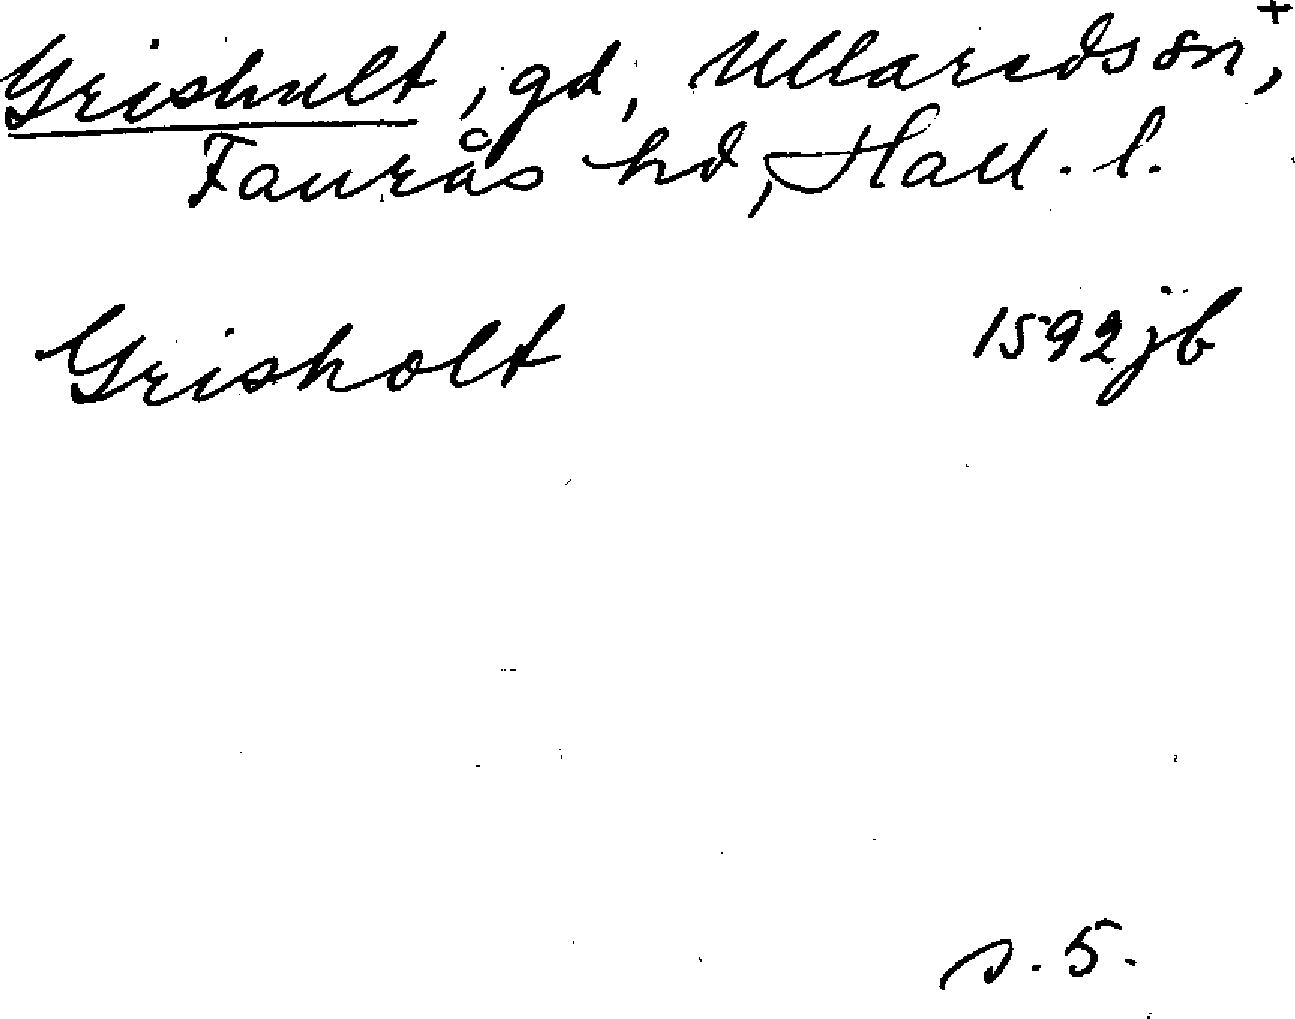 Grishult, gd, Ullareds sn, +
Faurås hd, Hall. l.
Grisholt 1592 jb
s. 5.